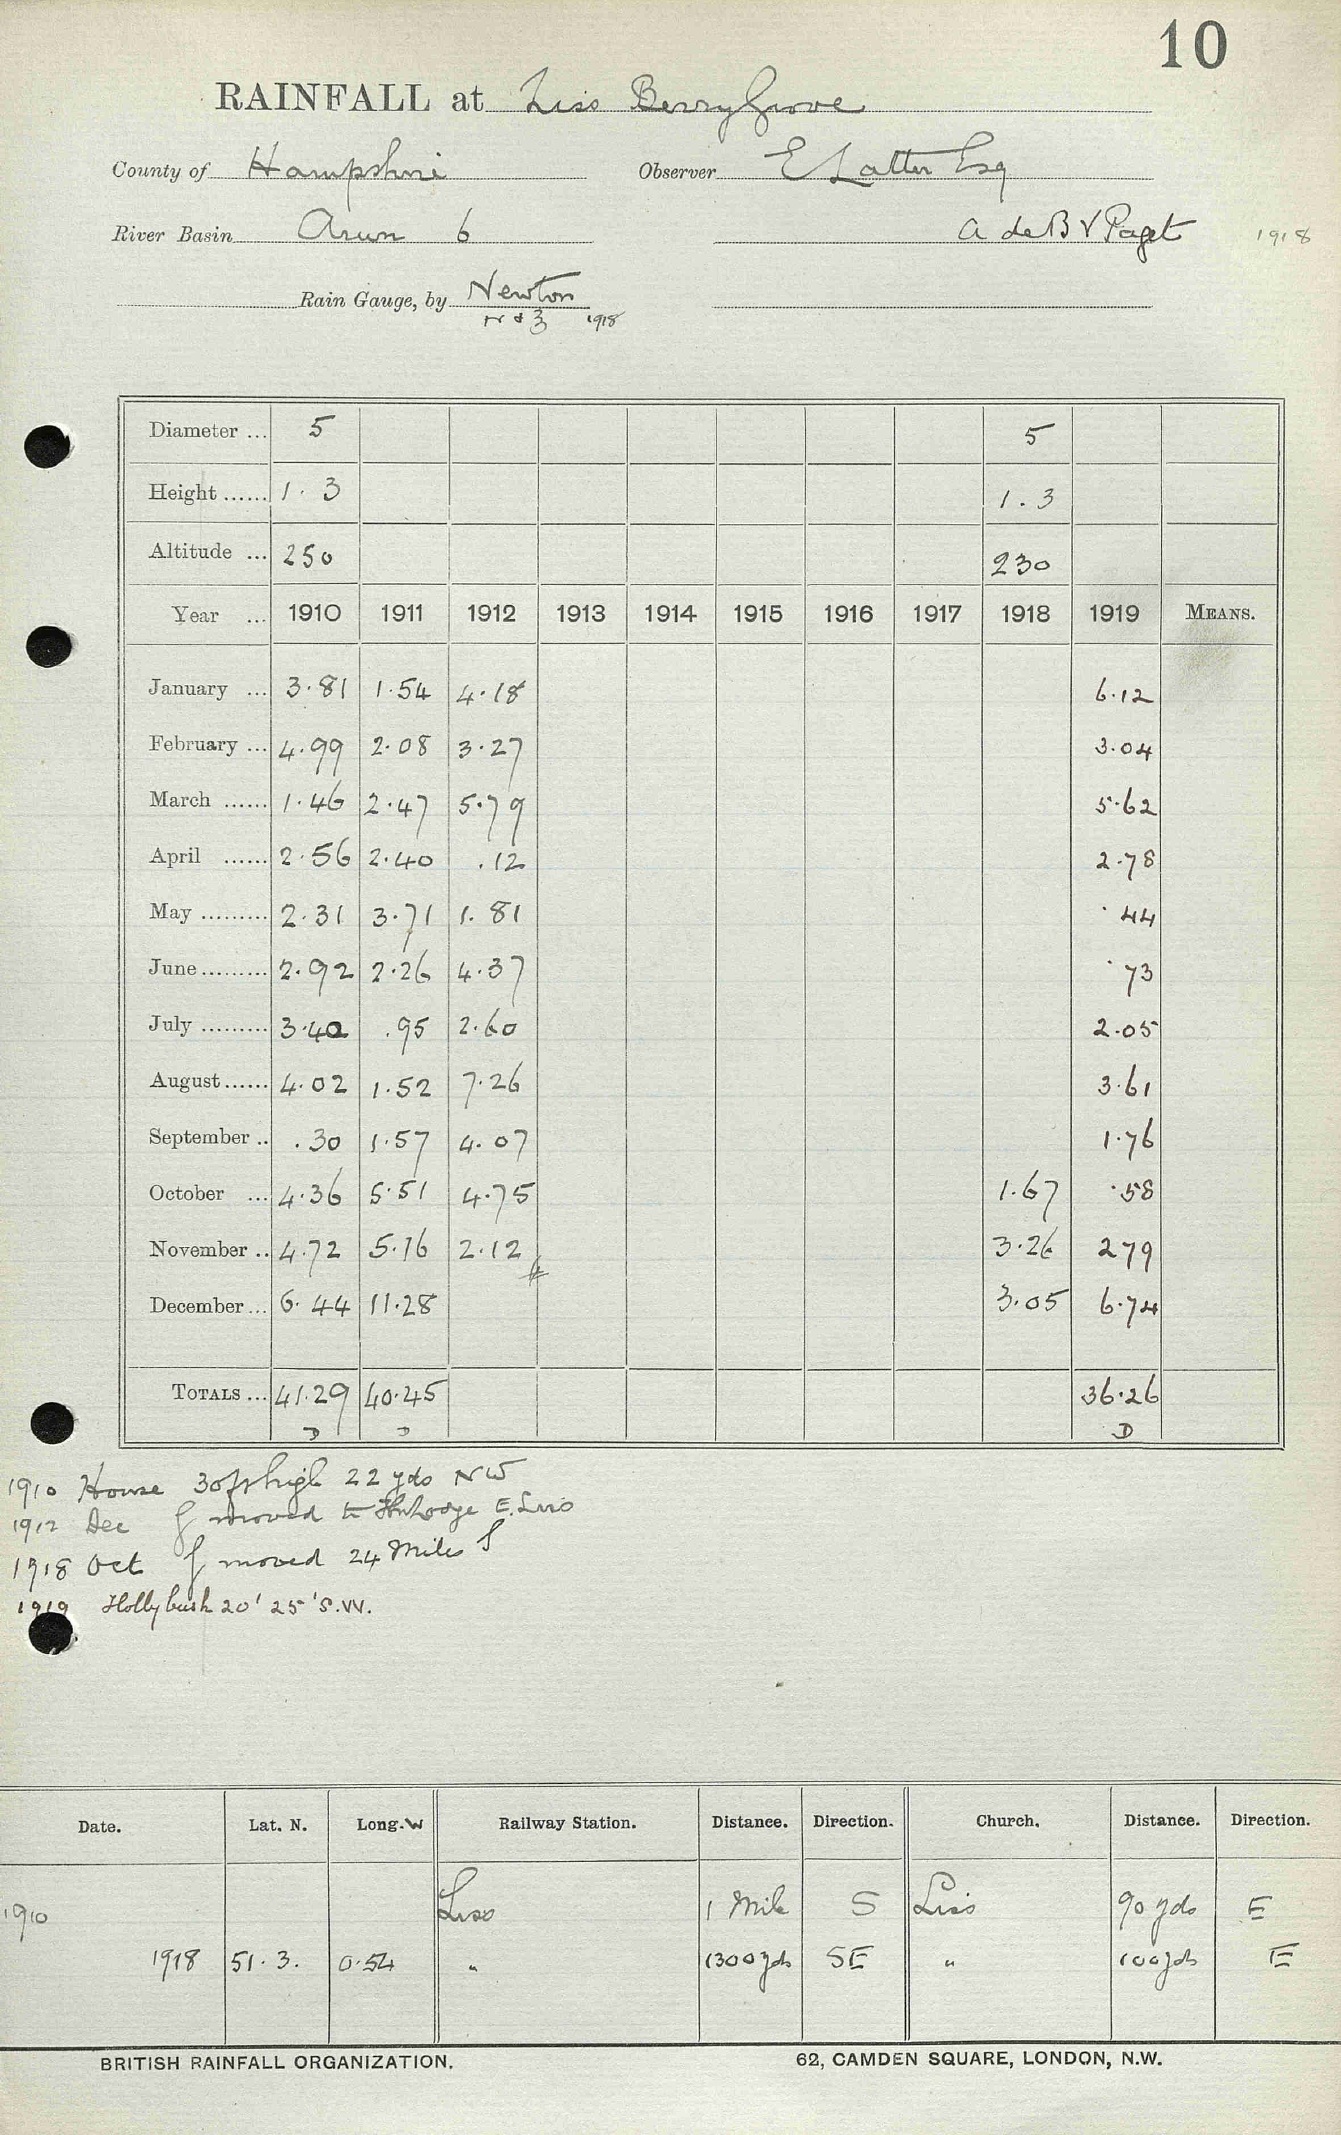 10
RAINFALL at Liss Berry Grove
County of Hampshire Observer E Latter Esq
River Basin Arun 6 A de B V Paget 1918
Rain Gauge, by Newton
N & Z 1918
Diameter ... 5 5
Height ...... 1.3 1.3
Altitude ... 250 230
Year ... 1910 1911 1912 1913 1914 1915 1916 1917 1918 1919 MEANS.
January ... 3.81 1.54 4.18 6.12
February ... 4.99 2.08 3.27 3.04
March ...... 1.46 2.47 5.79 5.62
April ...... 2.56 2.40 .12 2.78
May ......... 2.31 3.71 1.81 .44
June ......... 2.92 2.26 4.37 .73
July ......... 3.40 .95 2.60 2.05
August ...... 4.02 1.52 7.26 3.61
September .. .30 1.57 4.07 1.76
October ... 4.36 5.51 4.75 1.67 .58
November .. 4.72 5.16 2.12 3.26 279
December ... 6.44 11.28 3.05 6.74
TOTALS ... 41.29 40.45 36.26
D D D
1910 House 30ft high 22 yds NW
1912 Dec moved to E. Liss
1918 Oct moved 24 Miles
1919 Hollybush 20' 25' S.W.
Date. Lat. N. Long. W Railway Station. Distance. Direction. Church. Distance. Direction.
1910 Liss 1 Mile S Liss 90 yds E
1918 51.3. 0.54 " 1300 yds SE " 100 yds E
BRITISH RAINFALL ORGANIZATION. 62, CAMDEN SQUARE, LONDON, N.W.